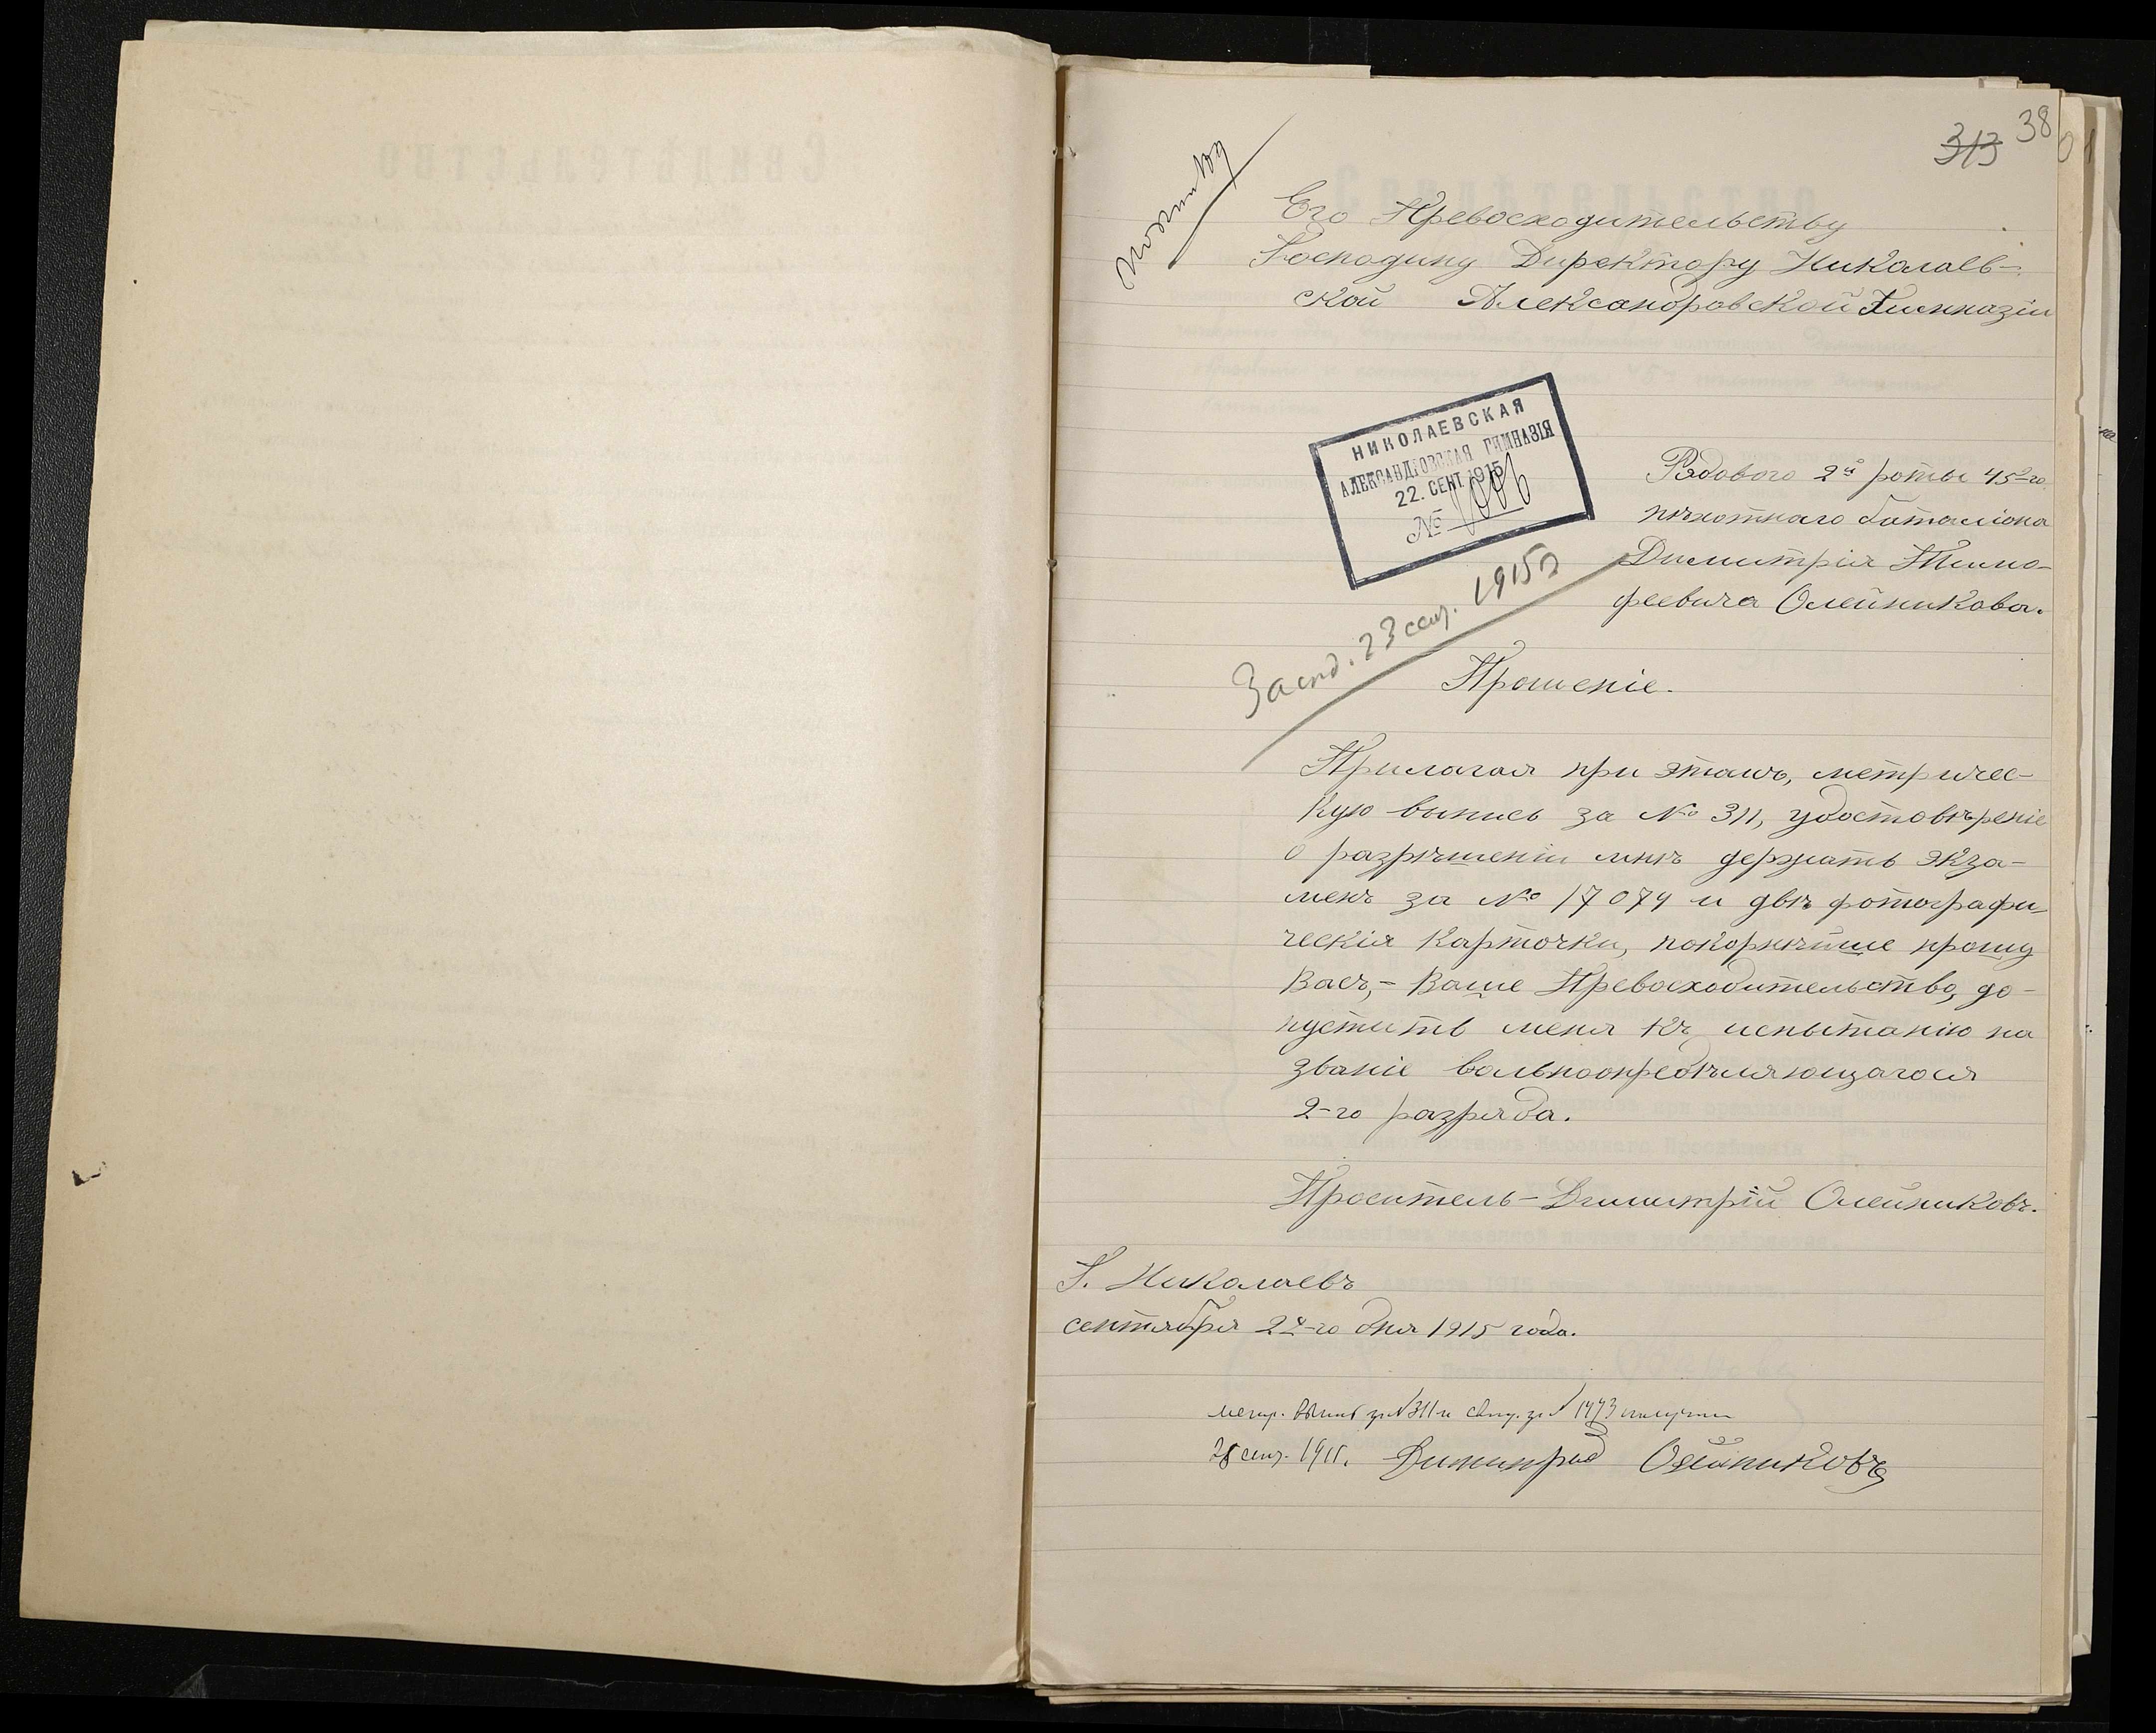 38
313
Его Превосходительству
Господину Директору Николаев-
ской Александровской Гимназіи
НИКОЛАЕВСКАЯ
АЛЕКСАНДРОВСКАЯ ГИМНАЗІЯ
22. СЕНТ. 1915
№
Рядового 2й роты 45-го
пѣхотнаго баталіона
Димитрія Тимо-
феевича Олейникова.
23 сент. 1915
Прошеніе.
Прилагая при этомъ, метричес-
кую выпись за № 311, удостовѣреніе
о разрѣшеніи мнѣ держать экза-
менъ за № 17074 и двѣ фотографи-
ческія карточки, покорнѣйше прошу
Васъ,- Ваше Превосходительство, до-
пустить меня къ испытанію на
званіе вольноопредѣляющагося
2-го разряда.
Проситель - Димитрій Олейниковъ.
Г. Николаевъ
сентября 22-го дня 1915 года.
метр. выпись за № 311 и свид. за № 1473 получилъ
сент. 1915. Димитрій Олейниковъ